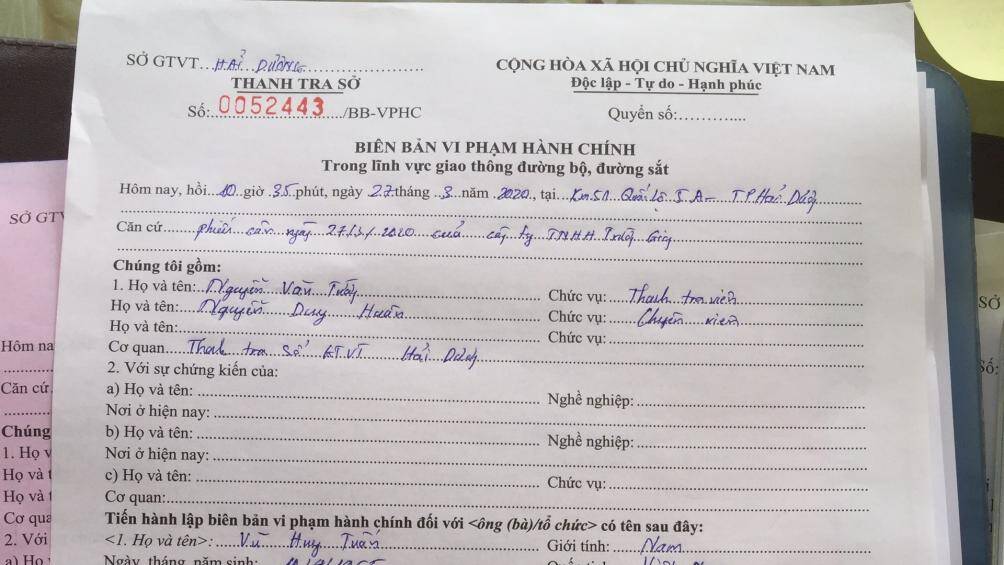 SỞ GTVT...HẢI DƯƠNG...
THANH TRA SỞ
Số:..0052443.../BB-VPHC
CỘNG HÒA XÃ HỘI CHỦ NGHĨA VIỆT NAM
Độc lập - Tự do - Hạnh phúc
Quyển số:............
BIÊN BẢN VI PHẠM HÀNH CHÍNH
Trong lĩnh vực giao thông đường bộ, đường sắt
Hôm nay, hồi...10...giờ..35..phút, ngày 27 tháng ..3..năm 2020, tại...Km51 Quốc lộ 5A - TP Hải Dương
Căn cứ...phiếu cân ngày 27/3/2020 của công ty TNHH Trường
Chúng tôi gồm:
1. Họ và tên: Nguyễn Văn Chức vụ: Thanh tra viên
Họ và tên: Nguyễn Duy Huân Chức vụ: Chuyên viên
Họ và tên: Chức vụ:
Cơ quan Thanh tra Sở GTVT Hải Dương
2. Với sự chứng kiến của:
a) Họ và tên: Nghề nghiệp:
Nơi ở hiện nay:
b) Họ và tên: Nghề nghiệp:
Nơi ở hiện nay:
c) Họ và tên: Chức vụ:
Cơ quan:
Tiến hành lập biên bản vi phạm hành chính đối với <ông (bà)/tổ chức> có tên sau đây:
<1. Họ và tên>: Vũ Huy Tuấn Giới tính: Nam
Ngày, tháng, năm sinh:
SỞ GTV
Hôm na
Căn cứ
Chúng
1. Họ v
Họ và t
Họ và t
Cơ qua
2. Với
a) Họ
SỞ
Số: